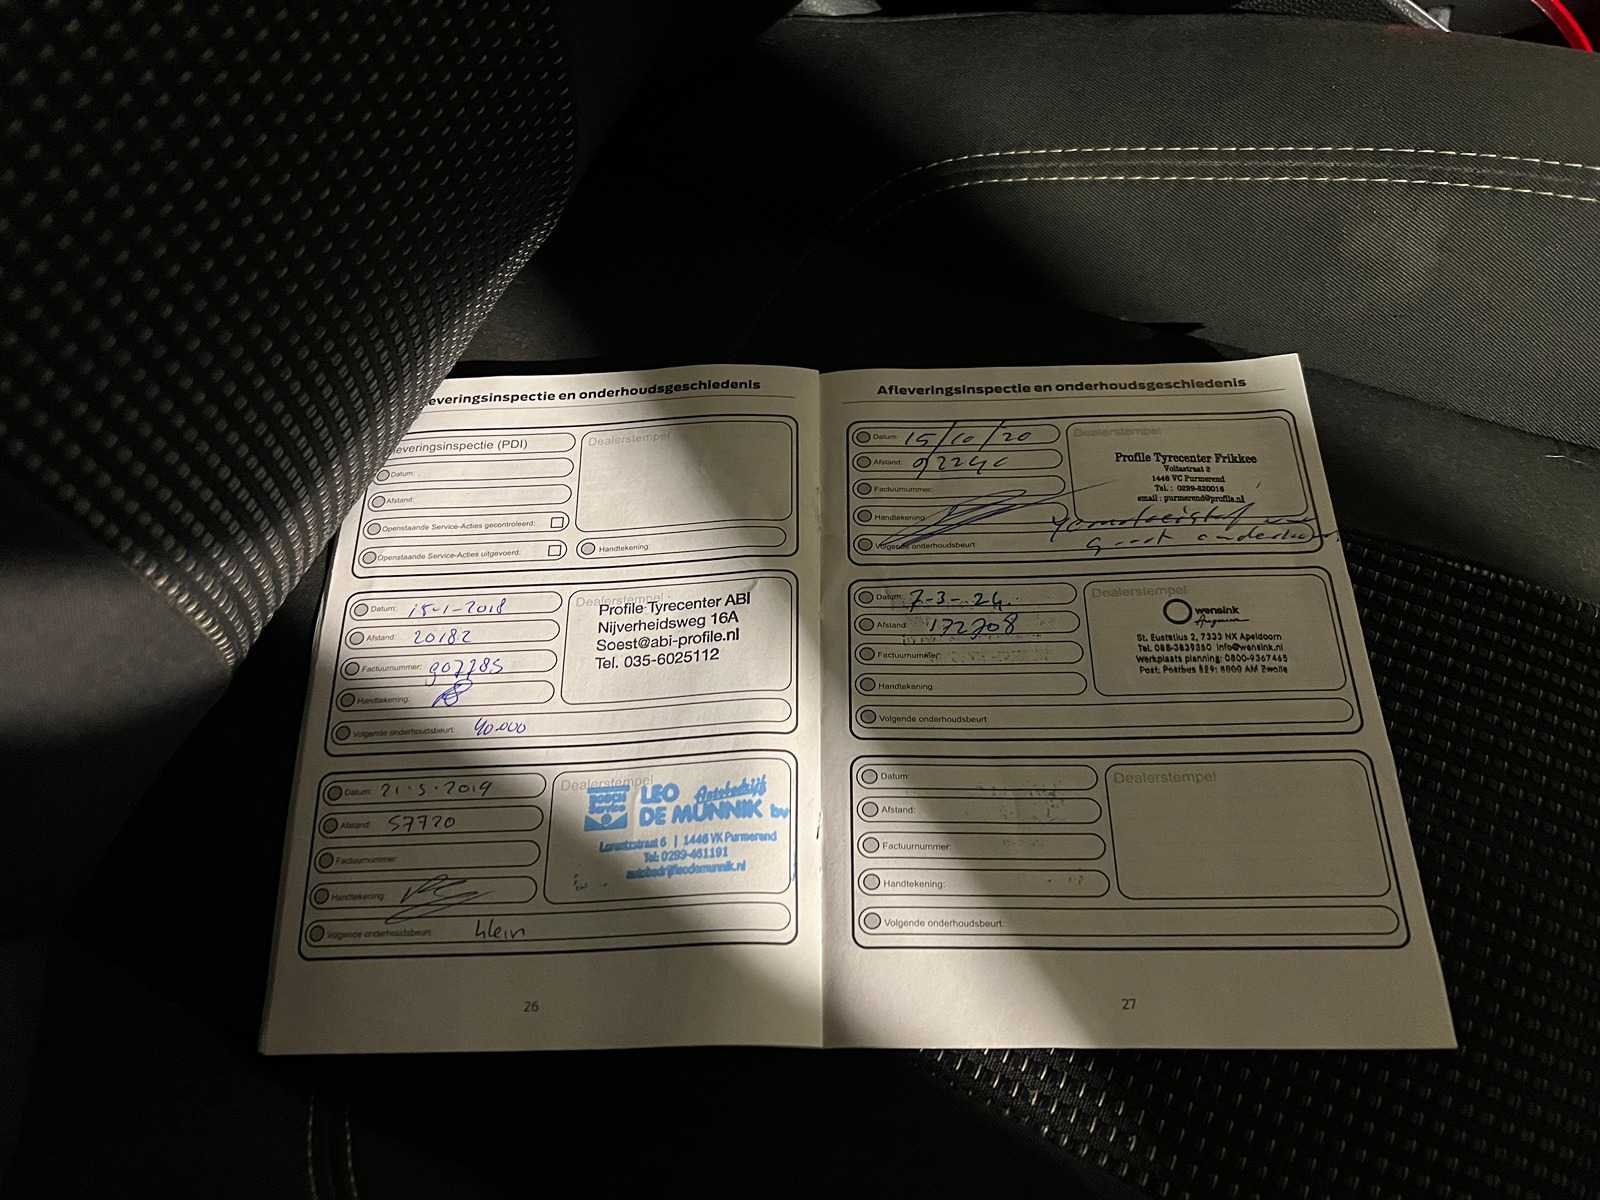 leveringsinspectie en onderhoudsgeschiedenis
leveringsinspectie (PDI)
Dealerstempel
Datum:
Afstand:
Openstaande Service-Acties gecontroleerd:
Openstaande Service-Acties uitgevoerd:
Handtekening:
Datum: 15-1-2018
Afstand: 20182
Factuurnummer: 907785
Handtekening:
Volgende onderhoudsbeurt: 40.000
Dealerstempel
Profile Tyrecenter ABI
Nijverheidsweg 16A
Soest@abi-profile.nl
Tel. 035-6025112
Datum: 21-5-2019
Afstand: 57720
Factuurnummer:
Handtekening:
Volgende onderhoudsbeurt: klein
Dealerstempel
Service
LEO Autobedrijf
DE MUNNIK bv
Lorentzstraat 6 | 1446 VK Purmerend
Tel: 0299-461191
autobedrijfleodemunnik.nl
26
Afleveringsinspectie en onderhoudsgeschiedenis
Datum: 15/10/20
Afstand:
Factuurnummer:
Handtekening:
Volgende onderhoudsbeurt
Dealerstempel
Profile Tyrecenter Frikkee
Voltastraat 2
1446 VC Purmerend
Tel. : 0299-820016
email : purmerend@profile.nl
Groot onderhoud
Datum: 7-3-24.
Afstand: 172708
Factuurnummer:
Handtekening:
Volgende onderhoudsbeurt
Dealerstempel
wensink
St. Eustatius 2, 7333 NX Apeldoorn
Tel. 088-3839350 info@wensink.nl
Werkplaats planning: 0800-9367465
Post: Postbus 529; 8000 AM Zwolle
Datum:
Afstand:
Factuurnummer:
Handtekening:
Volgende onderhoudsbeurt:
Dealerstempel
27